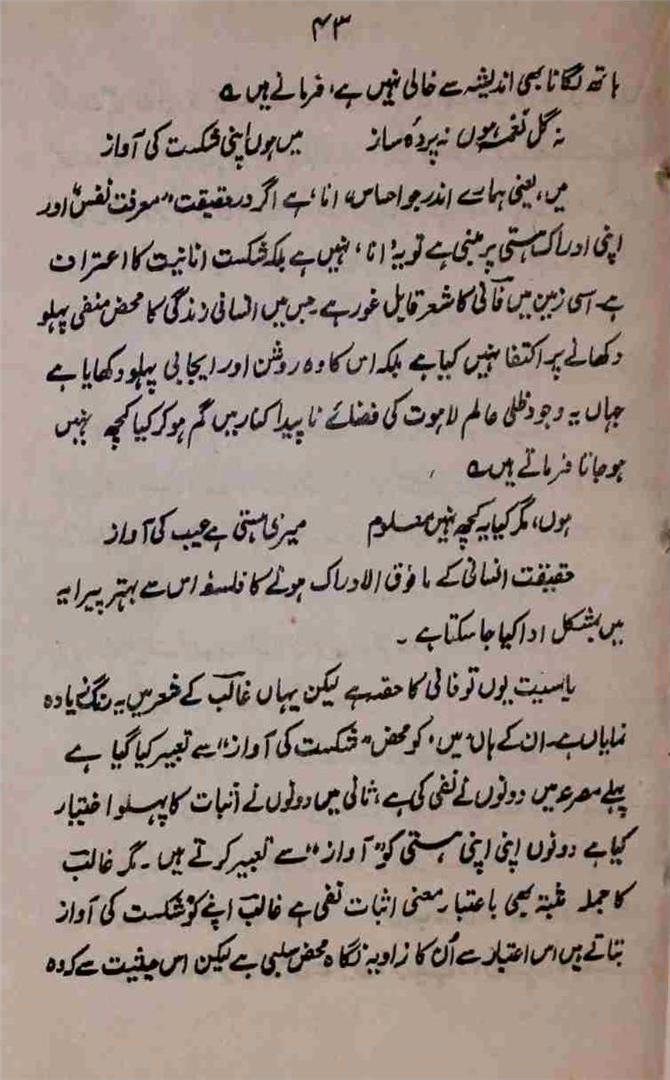 ۴۳
ہاتھ لگانا بھی اندیشہ سے خالی نہیں ہے، فرماتے ہیں ؎
نہ گل نغمہ ہوں نہ پردۂ ساز میں ہوں اپنی شکست کی آواز
میں، یعنی ہمارے اندر جو احساس، انا، ہے اگر درحقیقت "معرفت نفس" اور
اپنی ادراک ہستی پر مبنی ہے تو یہ 'انا' نہیں ہے بلکہ شکست انانیت کا اعتراف
ہے۔ اسی زمین میں فانی کا شعر قابل غور ہے۔ جس میں انسانی زندگی کا محض منفی پہلو
دکھانے پر اکتفا نہیں کیا ہے بلکہ اس کا وہ روشن اور ایجابی پہلو دکھایا ہے
جہاں یہ وجود ظلی عالم لاہوت کی فضائے ناپیدا کنار میں گم ہو کر کیا کچھ نہیں
ہو جاتا فرماتے ہیں ؎
ہوں، مگر کیا یہ کچھ نہیں معلوم میری ہستی ہے غیب کی آواز
حقیقت انسانی کے مافوق الادراک ہونے کا فلسفہ اس سے بہتر پیرایہ
میں بمشکل ادا کیا جا سکتا ہے ۔
یاسیت یوں تو فانی کا حصہ ہے لیکن یہاں غالب کے شعر میں یہ رنگ زیادہ
نمایاں ہے۔ ان کے ہاں 'میں' کو محض "شکست کی آواز" سے تعبیر کیا گیا ہے
پہلے مصرع میں دونوں نے نفی کی ہے، ثانی میں دونوں نے اثبات کا پہلو اختیار
کیا ہے دونوں اپنی اپنی ہستی کو "آواز" سے تعبیر کرتے ہیں ۔ مگر غالب
کا جملہ مثبتہ بھی باعتبار معنی اثبات نفی ہے غالب اپنے کو شکست کی آواز
بتاتے ہیں اس اعتبار سے اُن کا زاویہ نگاہ محض سلبی ہے لیکن اس حیثیت سے کہ وہ